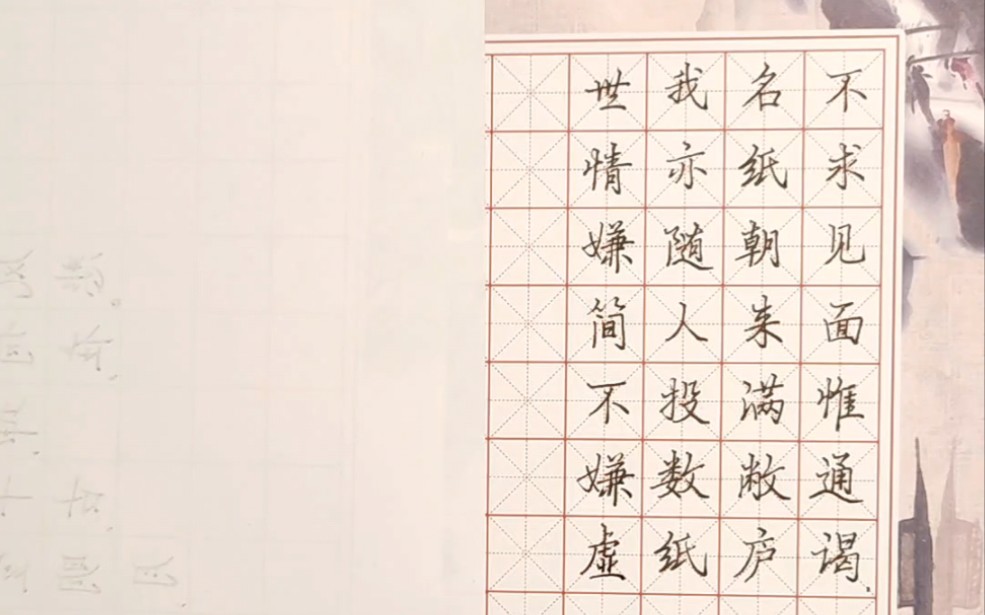 不求见面惟通谒
名纸朝来满敝庐
我亦随人投数纸
世情嫌简不嫌虚